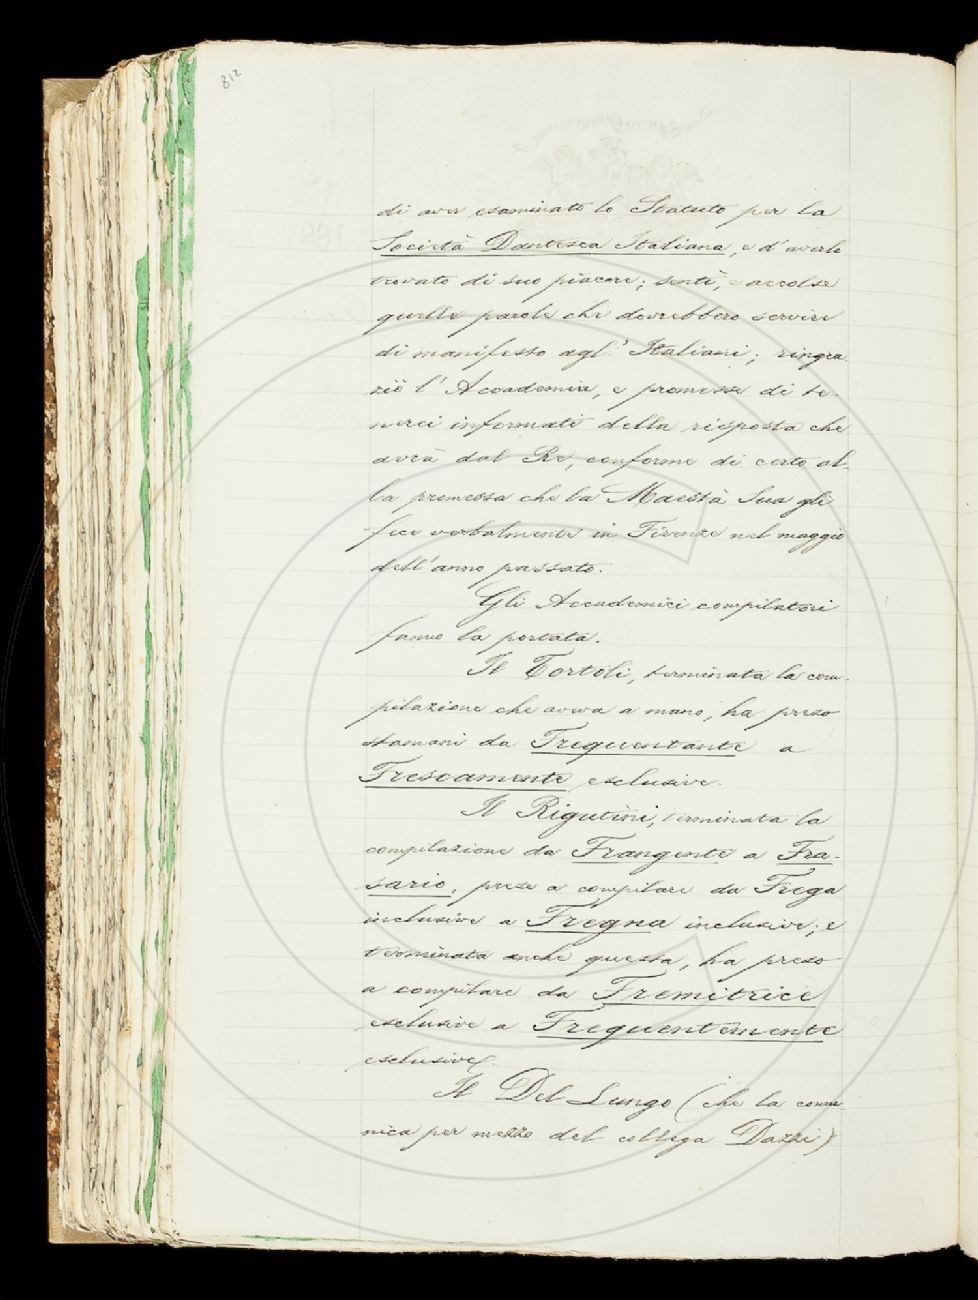 812
di aver esaminato lo Statuto per la
Società Dantesca Italiana, e d'averlo
trovato di suo piacere; sentì, e accolse
quelle parole che dovrebbero servire
di manifesto agl' Italiani; ringra
ziò l'Accademia, e promesse di te-
nerci informati della risposta che
avrà dal Re, conforme di certo al
la promessa che la Maestà Sua gli
fece verbalmente in Firenze nel maggio
dell'anno passato.
Gli Accademici compilatori
fanno la portata.
Il Tortoli, terminata la com-
pilazione che aveva a mano, ha preso
stamani da Frequentante a
Frescamente esclusive.
Il Rigutini, terminata la
compilazione da Frangente a Fra-
sario, prese a compilare da Frega
inclusive a Fregna inclusive; e
terminata anche questa, ha preso
a compilare da Fremitrice
esclusive a Frequentemente
esclusive.
Il Del Lungo (che la comu
nica per mezzo del collega Dazzi)